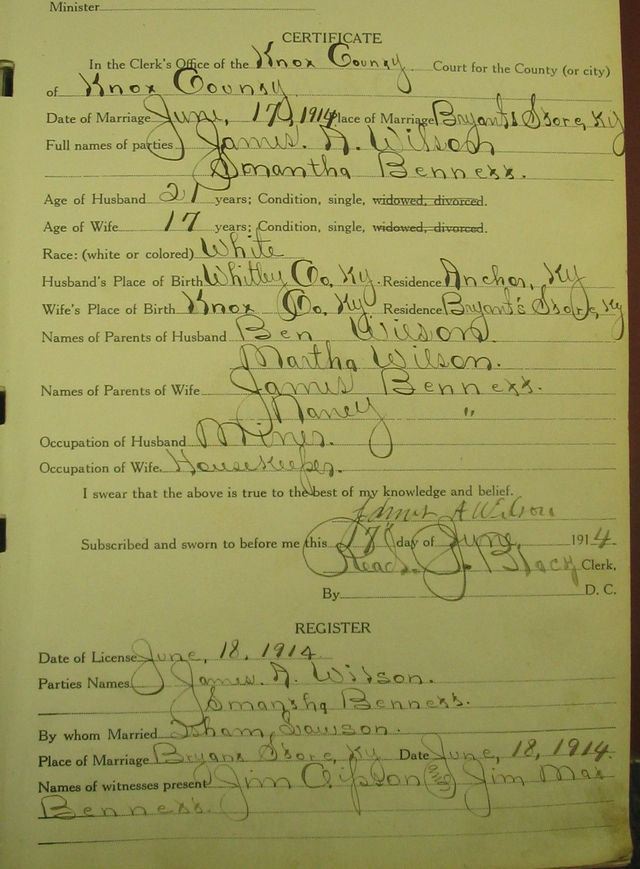 Minister
CERTIFICATE
In the Clerk's Office of the Knox County Court for the County (or city)
of Knox County
Date of Marriage June, 17, 1914 Place of Marriage Bryant's Store, Ky
Full names of parties James. A. Wilson
Smantha Bennett.
Age of Husband 21 years; Condition, single, widowed, divorced.
Age of Wife 17 years; Condition, single, widowed, divorced.
Race: (white or colored) White
Husband's Place of Birth Whitley Co, Ky. Residence Anchor, Ky
Wife's Place of Birth Knox Co, Ky. Residence Bryant's Store, Ky
Names of Parents of Husband Ben Wilson.
Martha Wilson.
Names of Parents of Wife James Bennett.
Nancy "
Occupation of Husband Miner.
Occupation of Wife Housekeeper.
I swear that the above is true to the best of my knowledge and belief.
A Wilson
Subscribed and sworn to before me this 17 day of June, 1914.
Read. J. Black Clerk,
By D. C.
REGISTER
Date of License June, 18, 1914
Parties Names James. A. Wilson.
Smantha Bennett.
By whom Married Isham, Lawson.
Place of Marriage Bryant Store, Ky Date June, 18, 1914
Names of witnesses present Jim Jim Mat
Bennett.